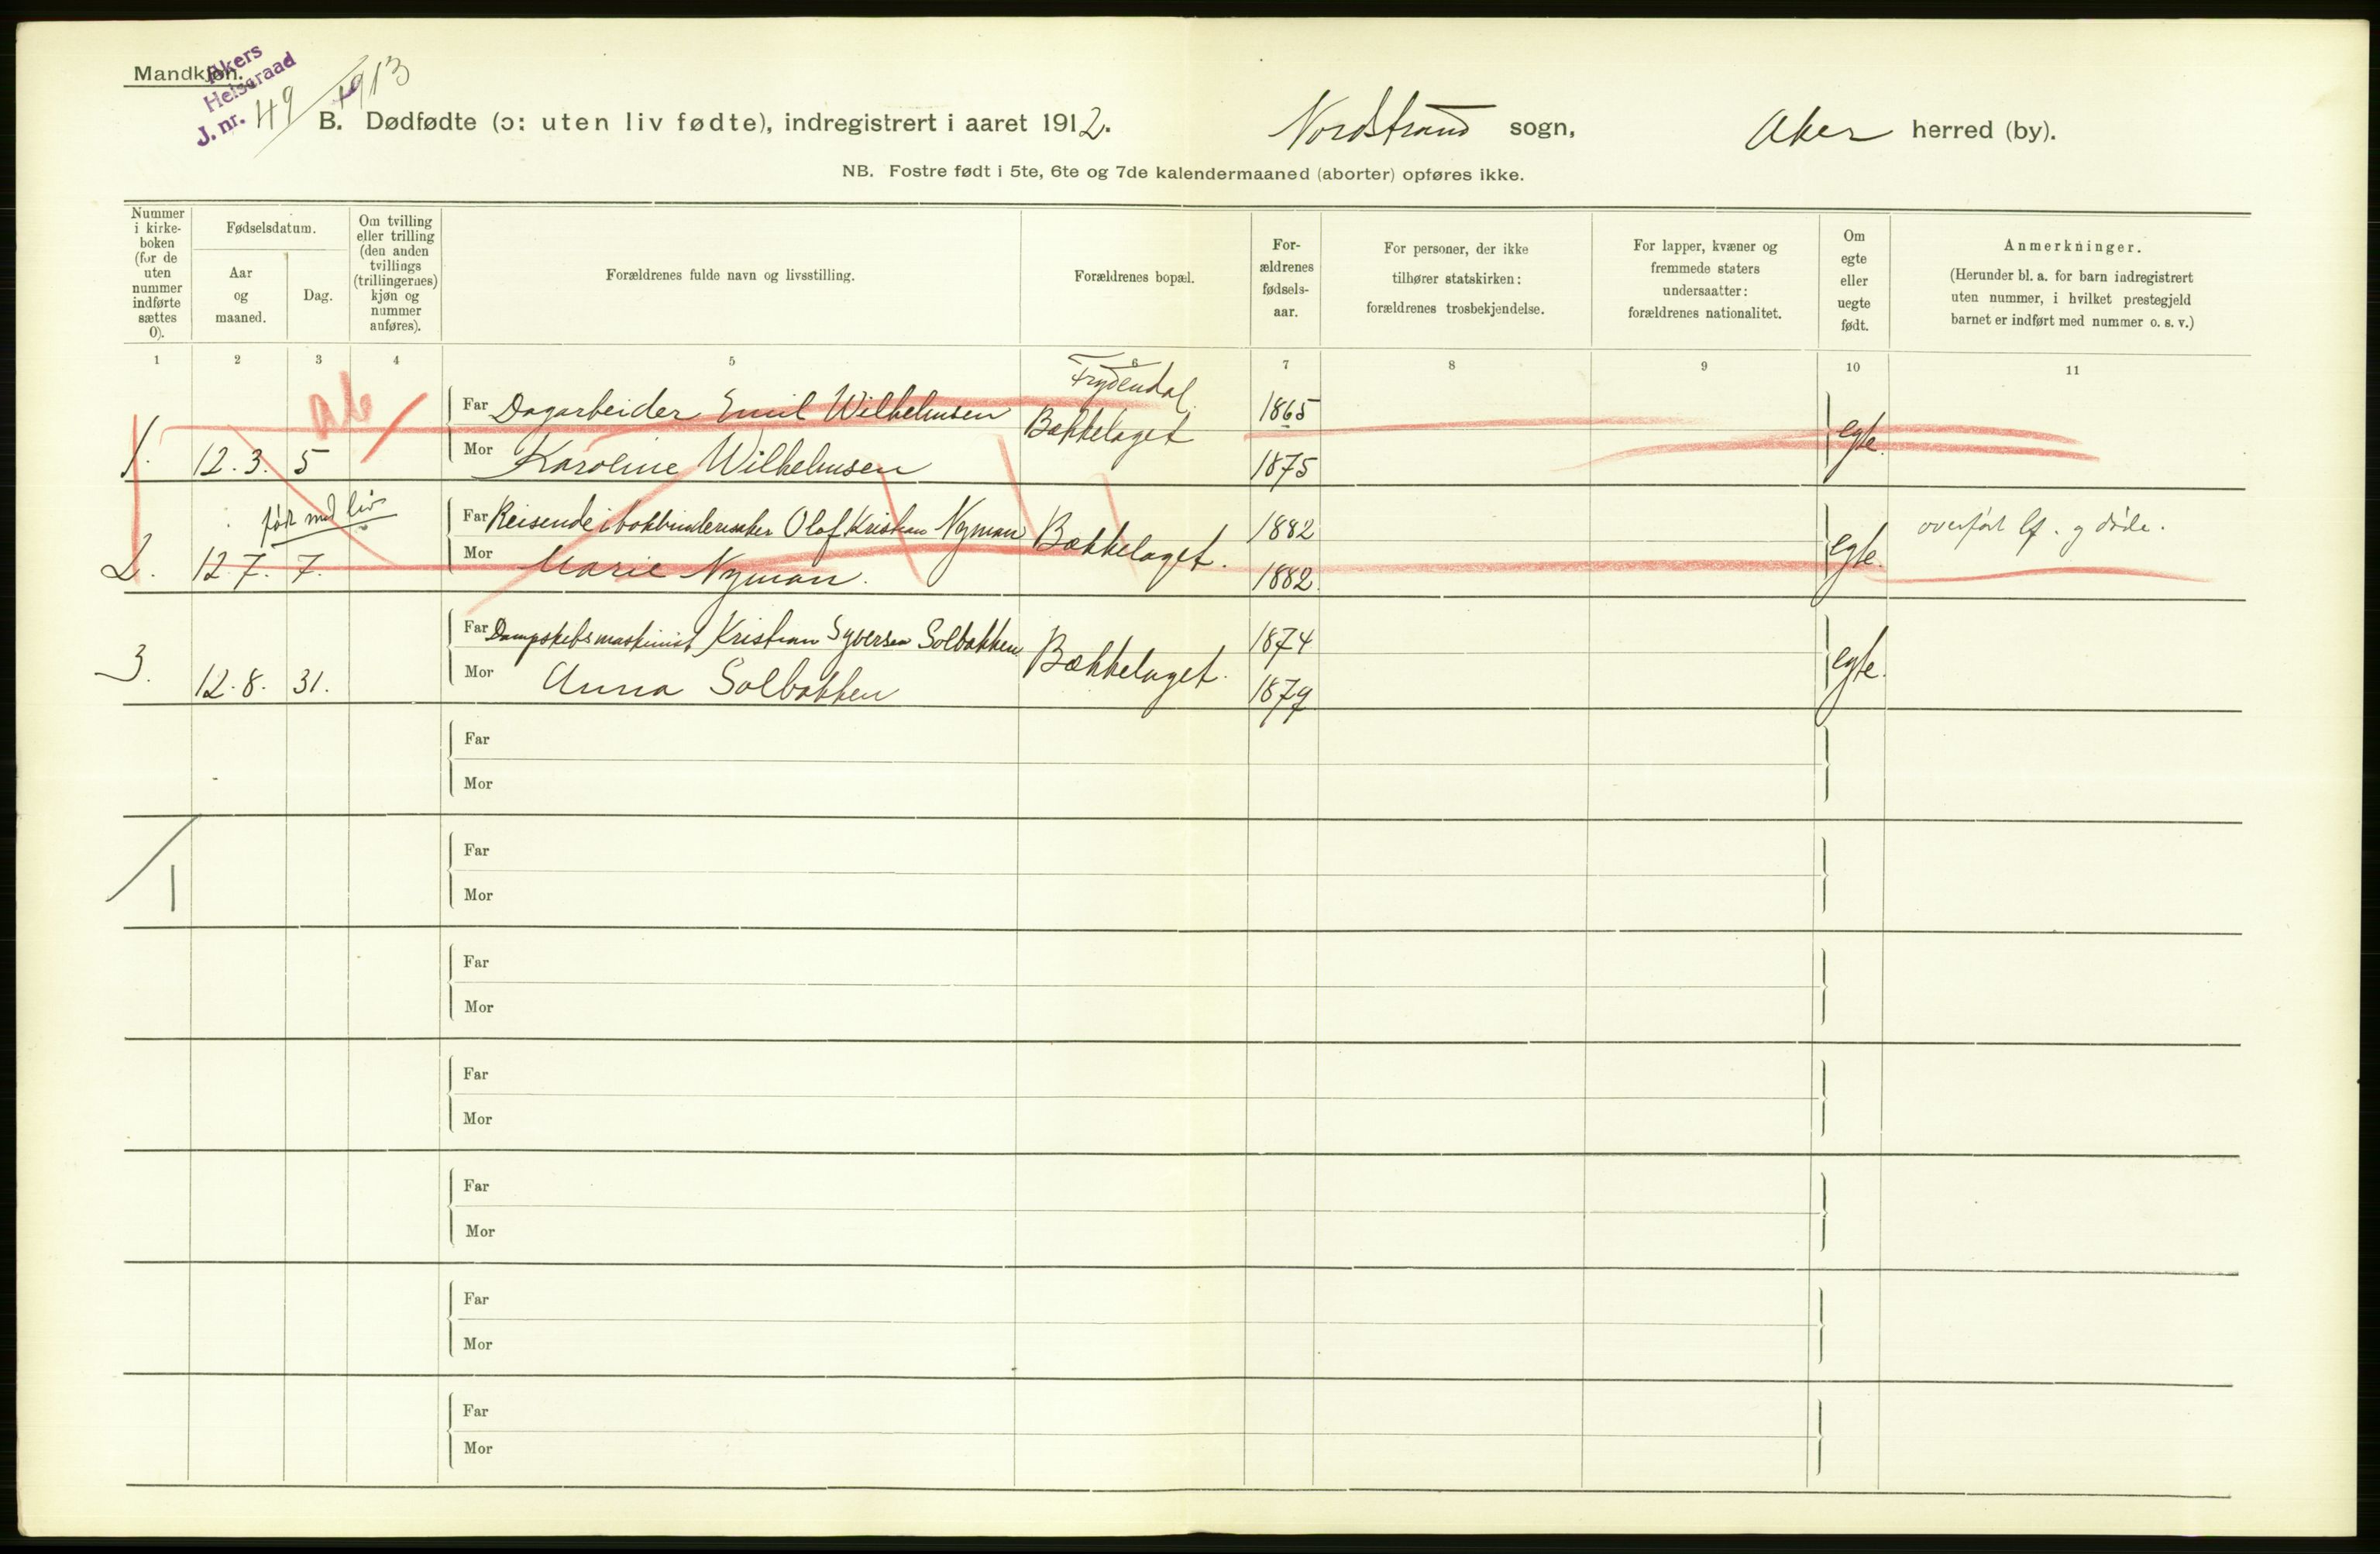 Mandkjøn.
Akers
Helseraad
J. nr. 49 1913
B. Dødfødte (ɔ: uten liv fødte), indregistrert i aaret 1912. Nordstrand sogn, Aker herred (by).
NB. Fostre født i 5te, 6te og 7de kalendermaaned (aborter) opføres ikke.
Nummer
i kirke-
boken
(for de
uten
nummer
indførte
sættes
0).
Fødselsdatum.
Aar
og
maaned.
Dag.
Om tvilling
eller trilling
(den anden
tvillings
(trillingernes)
kjøn og
nummer
anføres).
Forældrenes fulde navn og livsstilling.
Forældrenes bopæl.
For-
ældrenes
fødsels-
aar.
For personer, der ikke
tilhører statskirken:
forældrenes trosbekjendelse.
For lapper, kvæner og
fremmede staters
undersaatter:
forældrenes nationalitet.
Om
egte
eller
uegte
født.
Anmerkninger.
(Herunder bl. a. for barn indregistrert
uten nummer, i hvilket prestegjeld
barnet er indført med nummer o. s. v.)
1 2 3 4 5 6 7 8 9 10 11
ab
Frydendal
Far Dagarbeider Emil Wilhelmsen Bækkelaget 1865
1. 12. 3. 5 Mor Karoline Wilhelmsen 1875 egte.
født med liv
Far Reisende i bokbindersaker Olaf Kristian Nyman Bækkelaget. 1882 overført lf. og døde.
2. 12 7. 7. Mor Marie Nyman. 1882. egte.
Far Dampskibsmaskinist Kristian Syversen Solbakken Bækkelaget. 1874
3. 12. 8. 31. Mor Anna Solbakken 1879 egte.
Far
Mor
1
Far
Mor
Far
Mor
Far
Mor
Far
Mor
Far
Mor
Far
Mor